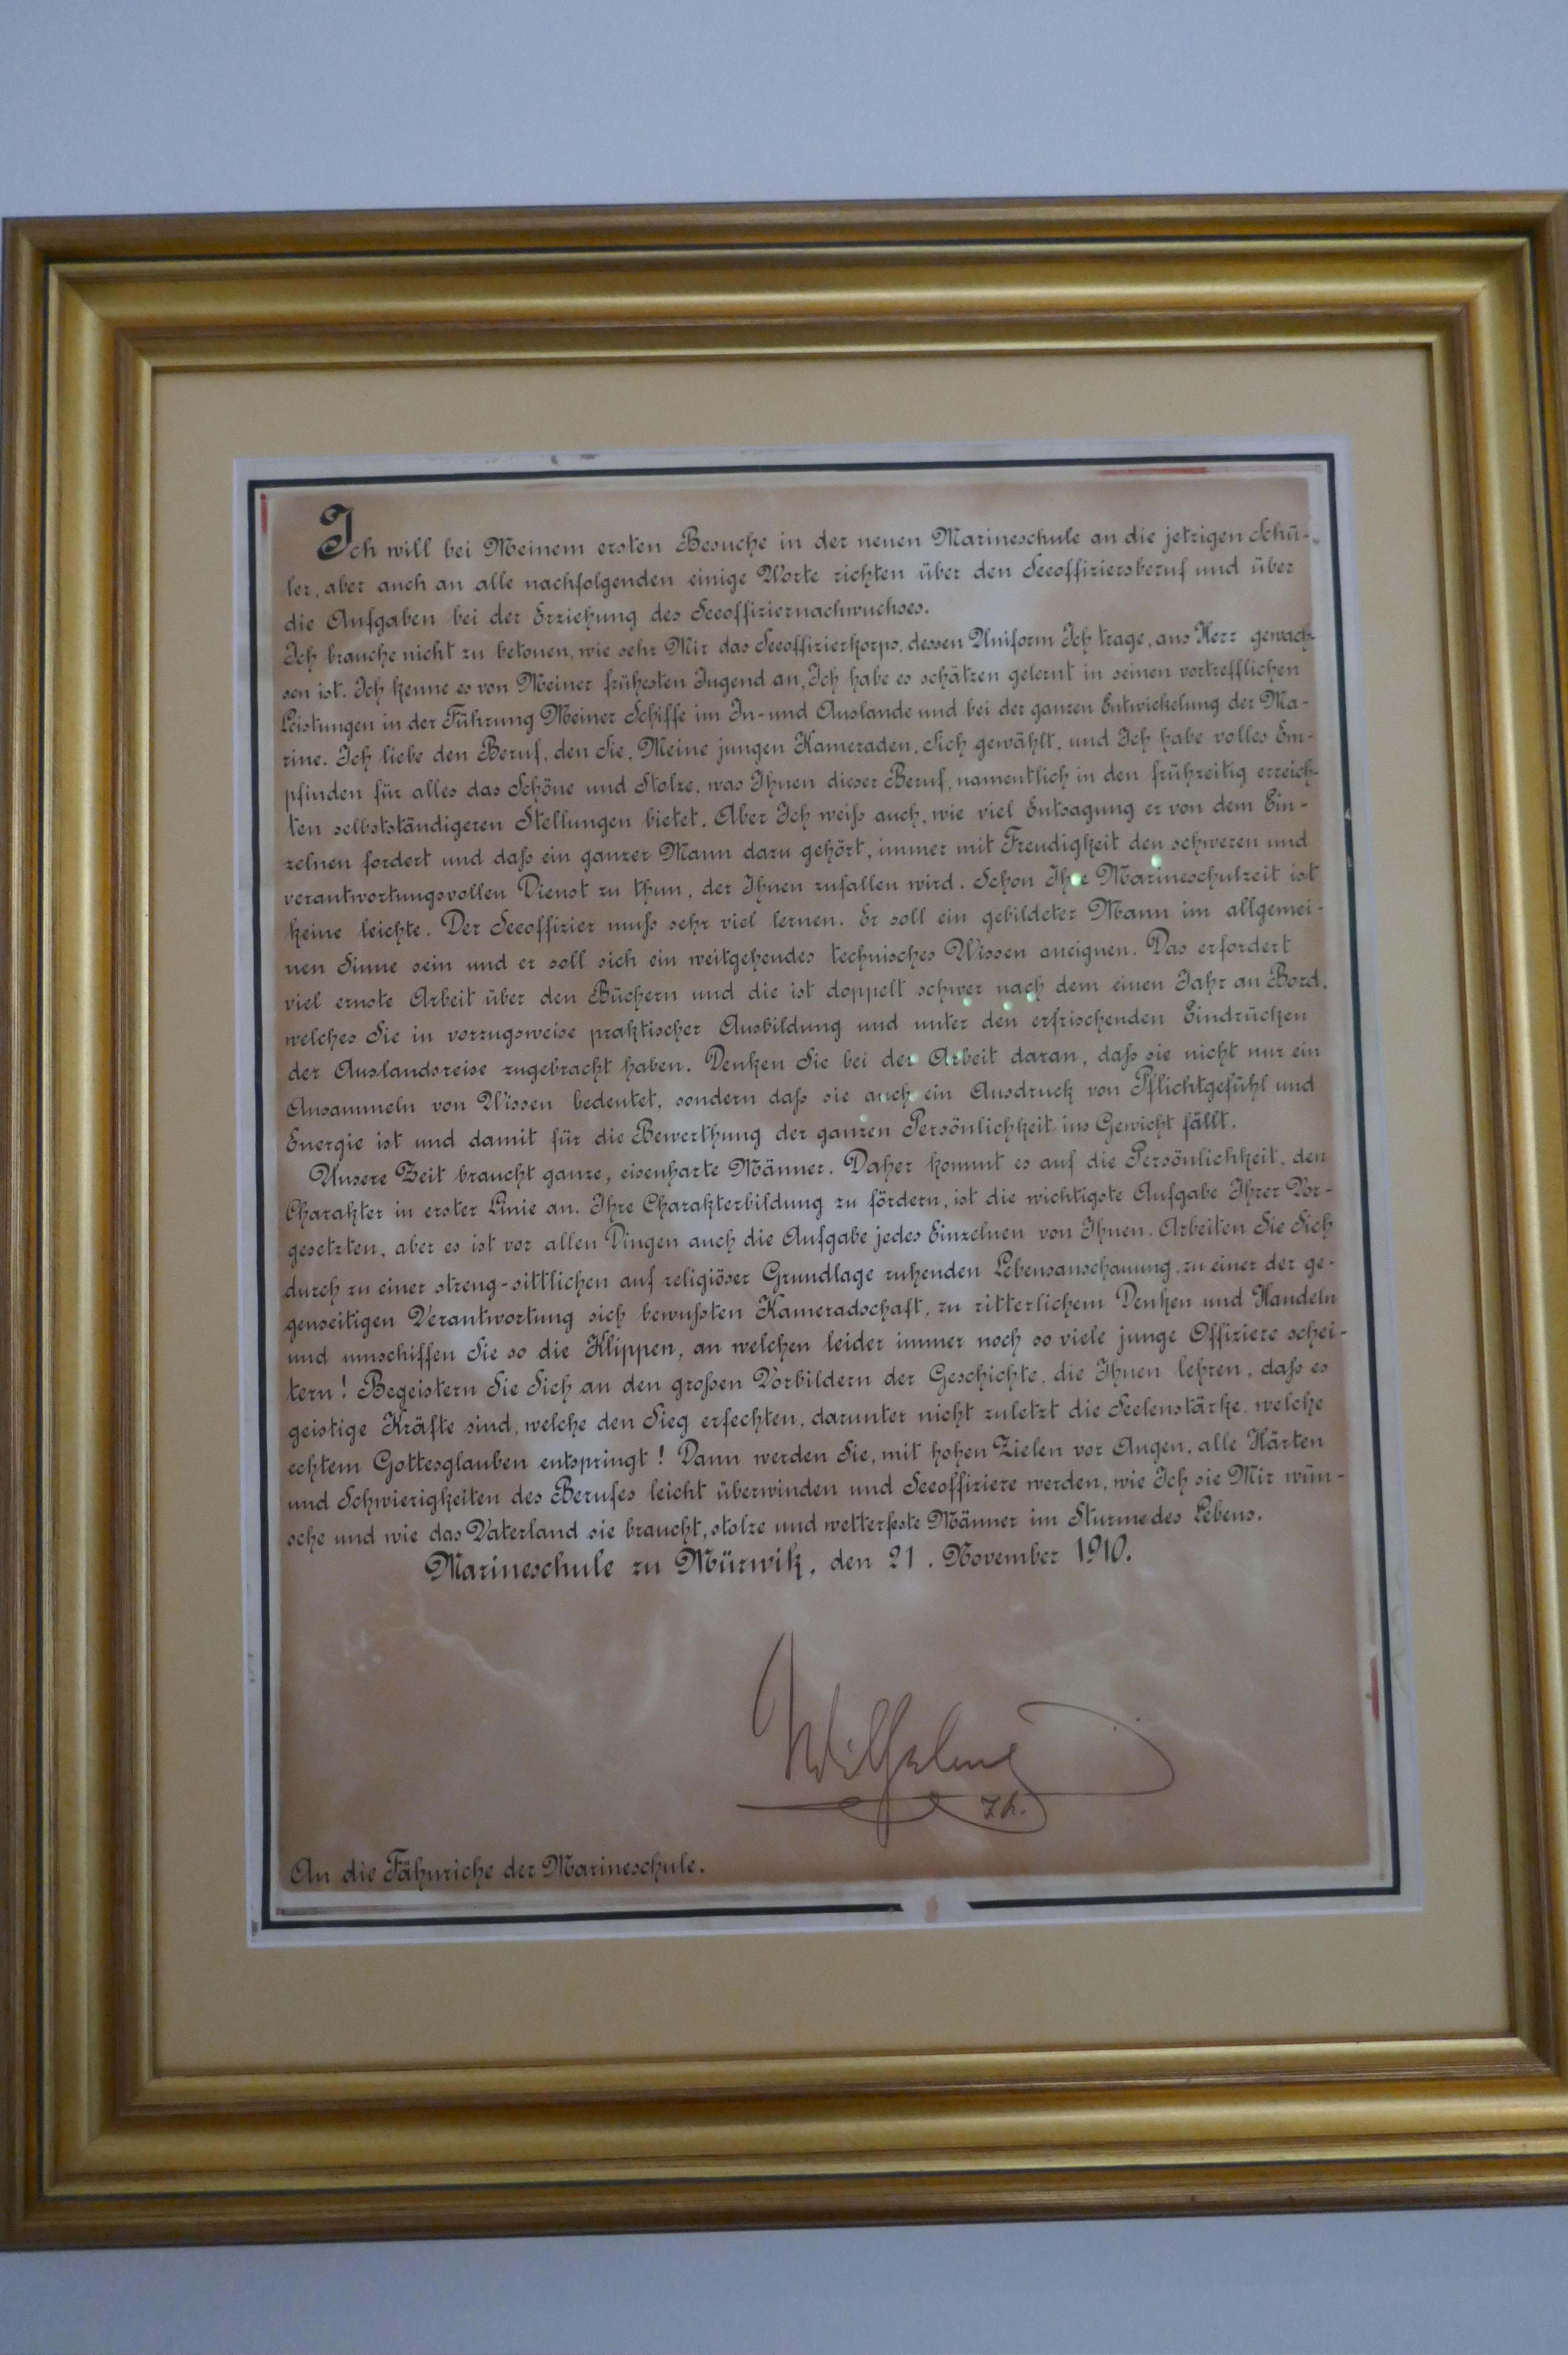 Ich will bei Meinem ersten Besuche in der neuen Marineschule an die jetzigen Schü-
ler, aber auch an alle nachfolgenden einige Worte richten über den Seeoffiziersberuf und über
die Aufgaben bei der Erziehung des Seeoffiziernachwuchses.
Ich brauche nicht zu betonen, wie sehr Mir das Seeoffizierkorps, dessen Uniform Ich trage, ans Herz gewach-
sen ist. Ich kenne es von Meiner frühesten Jugend an, Ich habe es schätzen gelernt in seinen vortrefflichen
Leistungen in der Führung Meiner Schiffe im In- und Auslande und bei der ganzen Entwickelung der Ma-
rine. Ich liebe den Beruf, den Sie, Meine jungen Kameraden, Sich gewählt, und Ich habe volles Em-
pfinden für alles das Schöne und Stolze, was Ihnen dieser Beruf, namentlich in den frühzeitig erreich-
ten selbstständigeren Stellungen bietet. Aber Ich weiß auch, wie viel Entsagung er von dem Ein-
zelnen fordert und daß ein ganzer Mann dazu gehört, immer mit Freudigkeit den schweren und
verantwortungsvollen Dienst zu thun, der Ihnen zufallen wird. Schon Ihre Marineschulzeit ist
keine leichte. Der Seeoffizier muß sehr viel lernen. Er soll ein gebildeter Mann im allgemei-
nen Sinne sein und er soll sich ein weitgehendes technisches Wissen aneignen. Das erfordert
viel ernste Arbeit über den Büchern und die ist doppelt schwer nach dem einen Jahr an Bord,
welches Sie in vorzugsweise praktischer Ausbildung und unter den erfrischenden Eindrücken
der Auslandsreise zugebracht haben. Denken Sie bei der Arbeit daran, daß sie nicht nur ein
Ansammeln von Wissen bedeutet, sondern daß sie auch ein Ausdruck von Pflichtgefühl und
Energie ist und damit für die Bewerthung der ganzen Persönlichkeit ins Gewicht fällt.
Unsere Zeit braucht ganze, eisenharte Männer. Daher kommt es auf die Persönlichkeit, den
Charakter in erster Linie an. Ihre Charakterbildung zu fördern, ist die wichtigste Aufgabe Ihrer Vor-
gesetzten, aber es ist vor allen Dingen auch die Aufgabe jedes Einzelnen von Ihnen. Arbeiten Sie Sich
durch zu einer streng-sittlichen auf religiöser Grundlage ruhenden Lebensanschauung, zu einer der ge-
genseitigen Verantwortung sich bewußten Kameradschaft, zu ritterlichem Denken und Handeln
und umschiffen Sie so die Klippen, an welchen leider immer noch so viele junge Offiziere schei-
tern! Begeistern Sie Sich an den großen Vorbildern der Geschichte, die Ihnen lehren, daß es
geistige Kräfte sind, welche den Sieg erfechten, darunter nicht zuletzt die Seelenstärke, welche
echtem Gottesglauben entspringt! Dann werden Sie, mit hohen Zielen vor Augen, alle Härten
und Schwierigkeiten des Berufes leicht überwinden und Seeoffiziere werden, wie Ich sie Mir wün-
sche und wie das Vaterland sie braucht, stolze und wetterfeste Männer im Sturme des Lebens.
Marineschule zu Mürwik, den 21. November 1910.
Wilhelm
I.R.
An die Fähnriche der Marineschule.